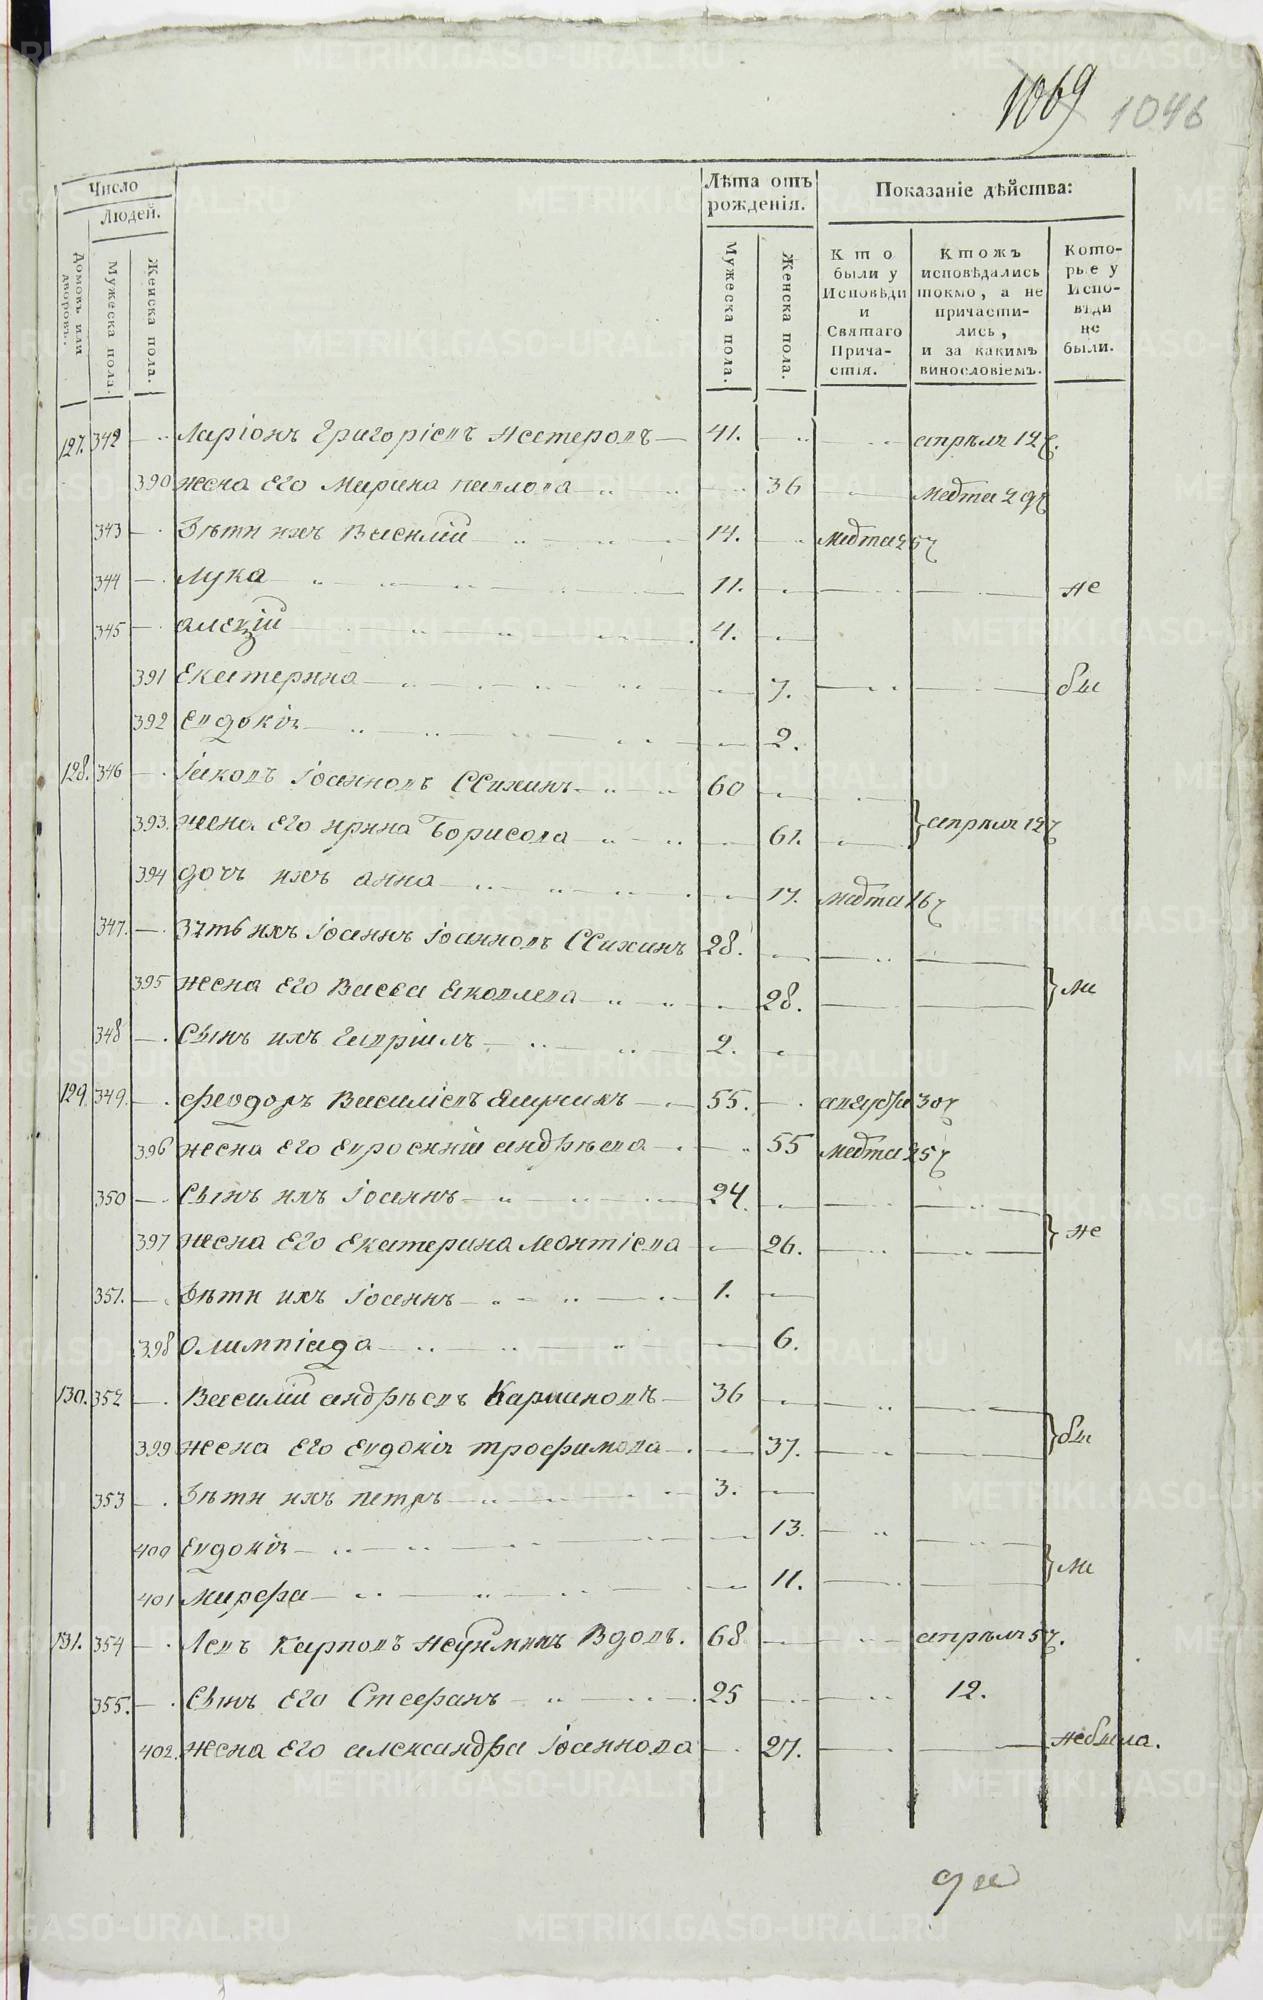 1069 1046
Число
Людей.
Домовъ или дворовъ.
Мужеска пола.
Женска пола.
Лѣта отъ рожденія.
Мужеска пола.
Женска пола.
Показаніе дѣйства:
Кто были у Исповѣди и Святаго Причастія.
Ктожъ исповѣдались токмо, а не причастились, и за какимъ винословіемъ.
Которые у Исповѣди не были.
127. 342 Ларіонъ Григоріевъ Нестеровъ 41. апрѣля 12
390 жена его Марина Павлова 36 марта 29
343 Дѣти ихъ Василій 14. марта 25
344 Лука 11. не
345 Алексій 4.
391 Екатерина 7. бы
392 Евдокія 2.
128. 346 Іаковъ Іоанновъ 60
393. жена его Ирина Борисова 61. апрѣля 12
394 дочь ихъ Анна 17. марта 16
347. зять ихъ Іоаннъ Іоанновъ 28.
395 жена его Васса Яковлева 28. ли
348 Сынъ ихъ Гавріилъ 2.
129. 349. Феодоръ Василіевъ 55. августа 30
396 жена его Евросинія Андрѣева 55 марта 25
350 Сынъ ихъ Іоаннъ 24.
397 жена его Екатерина Леонтіева 26. не
351. Дѣти ихъ Іоаннъ 1.
398 Олимпіада 6.
130. 352 Василій Андрѣевъ 36
399 жена его Евдокія Трофимова 37. бы
353 Дѣти ихъ Петръ 3.
400 Евдокія 13.
401 Марфа 11. ли
131. 354 Левъ Карповъ Неуйминъ Вдовъ. 68 апрѣля 5
355. Сынъ его Стефанъ 25 12.
402. жена его Александра Іоаннова 27. небыла.
METRIKI.GASO-URAL.RU